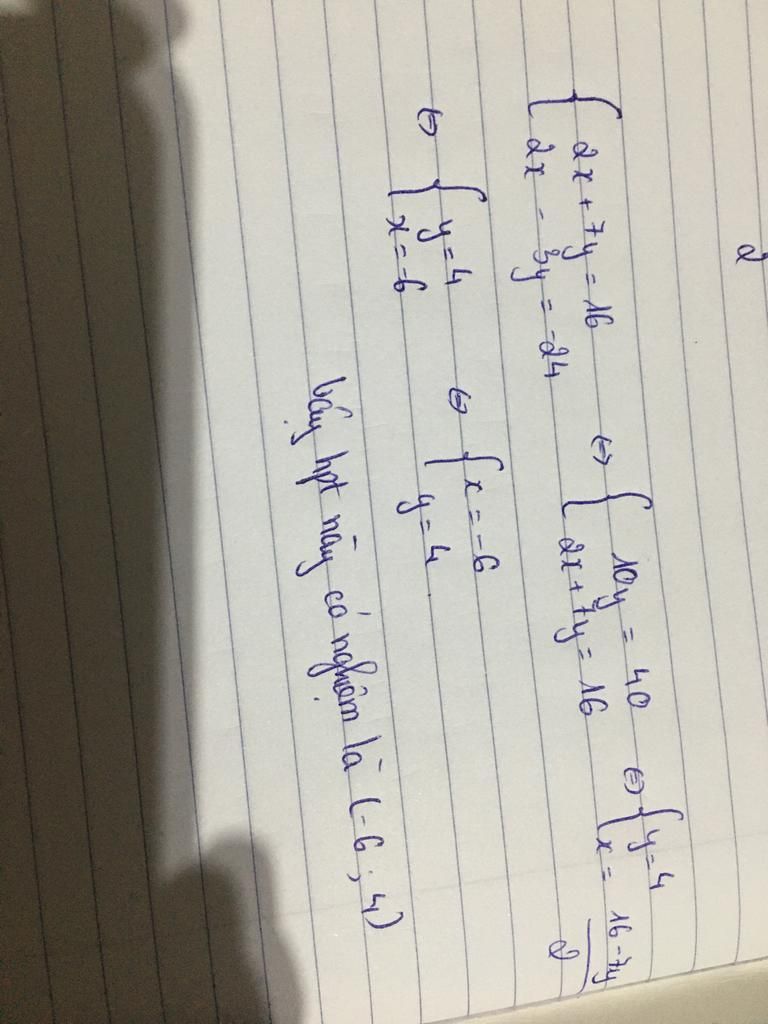 2
{ 2x + 7y = 16
2x - 3y = -24 ⇔ { 10y = 40
2x + 7y = 16 ⇔ { y = 4
x = (16 - 7y)/2
⇔ { y = 4
x = -6 ⇔ { x = -6
y = 4.
Vậy hpt này có nghiệm là (-6 ; 4)